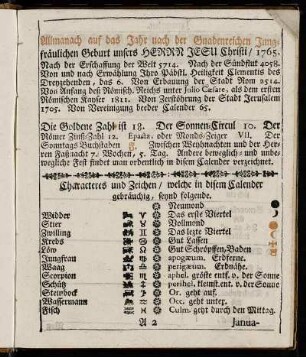 Allmanach auf das Jahr nach der Gnadenreichen Jung-
fräulichen Geburt unsers HERRN JESU Christi / 1765.
Nach der Erschaffung der Welt 5714. Nach der Sündflut 4058.
Von und nach Erwöhlung Ihro Päbstl. Heiligkeit Clementis des
Dreyzehenden, das 6. Von Erbauung der Stadt Rom 2514.
Von Anfang deß Römisch. Reichs unter Julio Cæsare, als dem ersten
Römischen Kayser 1811. Von Zerstöhrung der Stadt Jerusalem
1705. Von Vereinigung breder Calender 65.
Die Goldene Zahl ist 18. Der Sonnen-Circul 10. Der
Römer Zins-Zahl 12. Epakt. oder Monds-Zeiger VII. Der
Sonntags Buchstaben Zwischen Weyhnachten und der Her-
ren Faßnacht 7. Wochen, 5. Tag. Andere bewegliche und unbe-
wegliche Fest findet man ordentlich in disem Calender verzeichnet.
Characteres und Zeichen / welche in disem Calender
gebräuchig, seynd folgende.
Neumond
Widder ♈ Das erste Viertel
Stier ♉ Vollmond
Zwilling ♊ Das lezte Viertel
Krebs ♋ Gut Lassen
Löw ♌ Gut Schröpffen/Baden
Jungfrau ♍ apogæum. Erdferne.
Waag ♎ perigæum. Erdnähe.
Scorpion ♏ aphel. gröste entf. v. der Sonne
Schütz ♐ perihel. kleinst. ent. v. der Sonne
Steinbock ♑ Or. geht auf.
Wassermann ♒ Occ. geht unter.
Fisch ♓ Culm. geht durch den Mittag.
A 2 Janua-